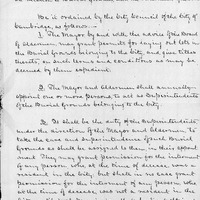 Be it ordained by the City Council of the City of
Cambridge, as follows:
1. The Mayor by and with the advice of the Board
of Aldermen, may grant permits for laying out lots in
the Burial Grounds belonging to the City, and give titles
thereto, on such terms and conditions as may be
deemed by them expedient.
2. The Mayor and Aldermen shall annually
appoint one or more persons to act as Superintendents
of the Burial Grounds belonging to the City.
3. It shall be the duty of the Superintendents
under the direction of the Mayor and Aldermen, to
take the care and superintendence of such Burial
Grounds as shall be assigned to them in their appoint
ment. They may grant permission for the interment
of any person who at the time of decease was a
resident in the City, but shall in no case grant
permission for the interment of any person who
at the time of decease, was not a resident in the